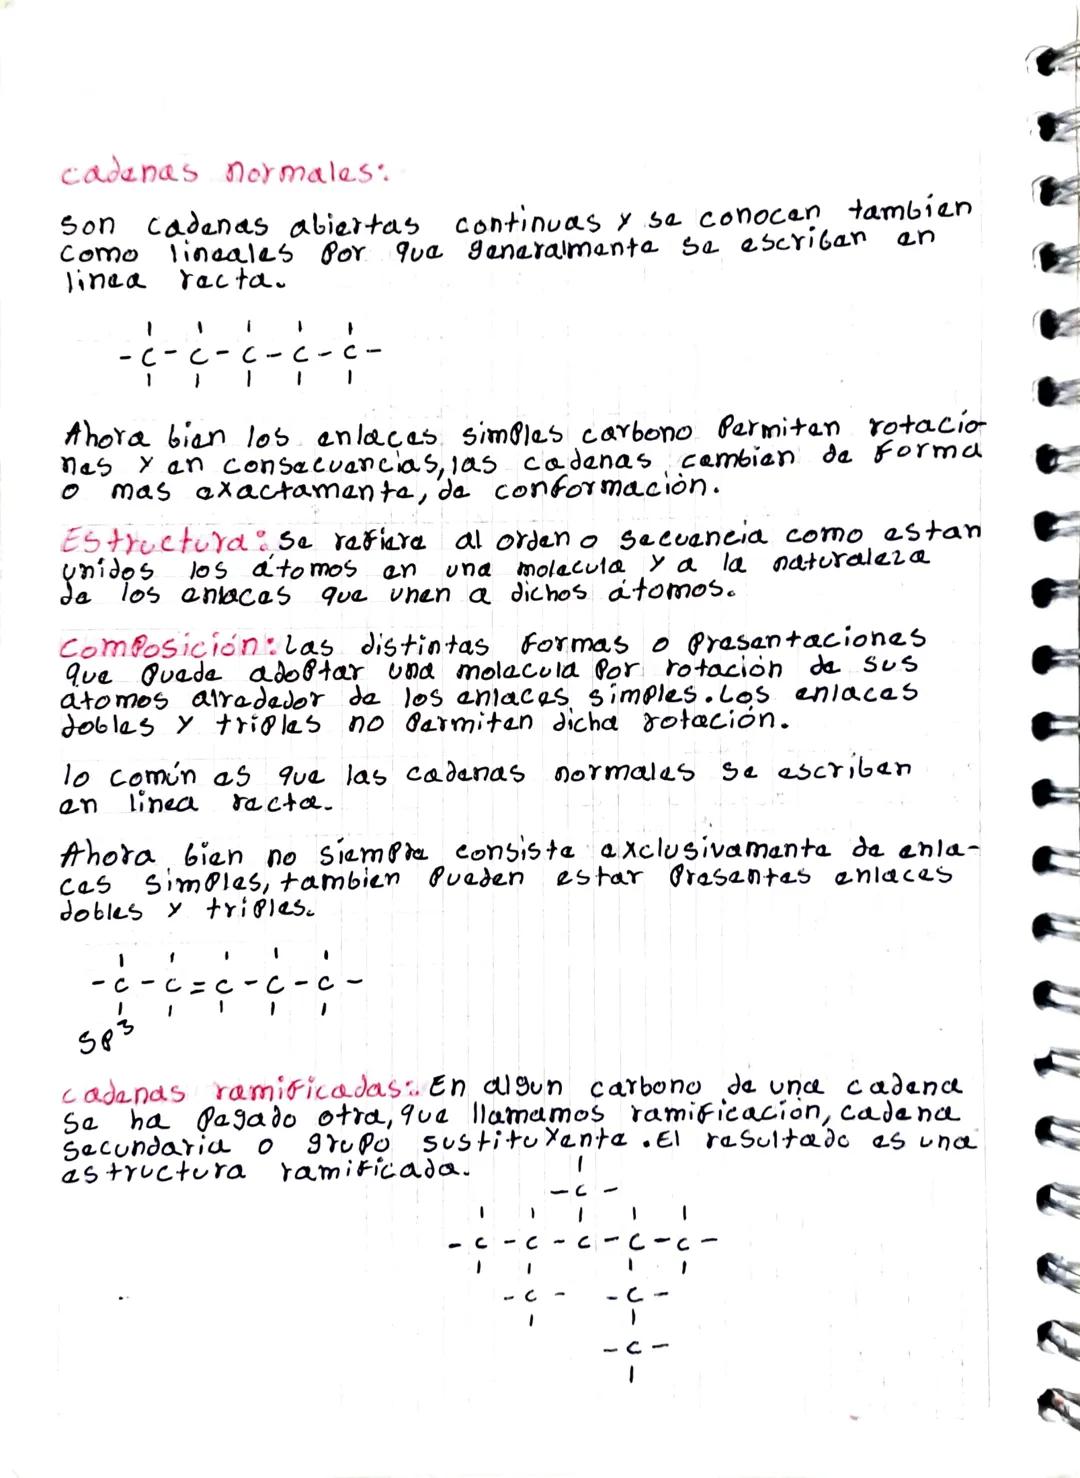 cadenas normales:
Son cadenas abiertas continuas y se conocen tambien
como lineales por que generalmente se escriban en
linea recta.
-C-C-C-C-C-
Ahora bien los enlaces simples carbono permiten rotacio
nes y en consecuencias, las cadenas cambian de forma
o mas exactamente, de conformación.
Estructura: se refiere al orden o secuencia como estan
unidos los átomos en una molecula y a la naturaleza
de los enlaces que unen a dichos átomos.
Composición: Las distintas formas o presentaciones
que puede adoptar una molecula por rotación de sus
atomos alrededor de los enlaces simples. Los enlaces
dobles y triples no permiten dicha rotación.
lo común es que las cadenas normales se escriben
en linea recta.
Ahora bien no siempre consiste exclusivamente de enla-
ces simples, tambien pueden estar presentes enlaces
dobles y triples.
-C-C=C-C-C-
SP³
cadenas ramificadas: En algun carbono de una cadena
se ha pegado otra, que llamamos ramificación, cadena
secundaria o grupo sustituyente. El resultado es una
estructura ramificada.
-C-
-C-C-C-C-C-
-C- -C-
-C-